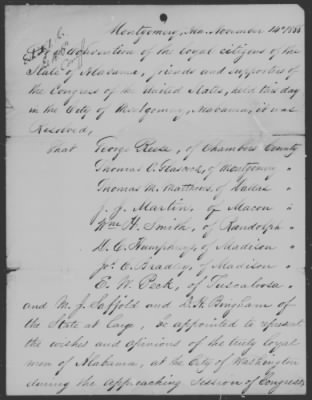 Montgomery, Ala. November 14th 1865
Convention of the loyal citizens of the
State of Alabama, friends and supporters of
the Congress of the United States, held this day
in the City of Montgomery, Alabama, it was
Resolved,
That George Reese, of Chambers County
Thomas C. Glascock, of Montgomery "
Thomas M. Matthews, of Dallas "
J. J. Martin, of Macon "
Wm H. Smith, of Randolph "
D. C. Humphreys, of Madison "
Jos. C. Bradley, of Madison "
E. W. Peck, of Tuscaloosa "
and M. J. Saffold and D. H. Bingham of
the State at large, be appointed to represent
the wishes and opinions of the truly loyal
men of Alabama, at the City of Washington
during the approaching session of Congress